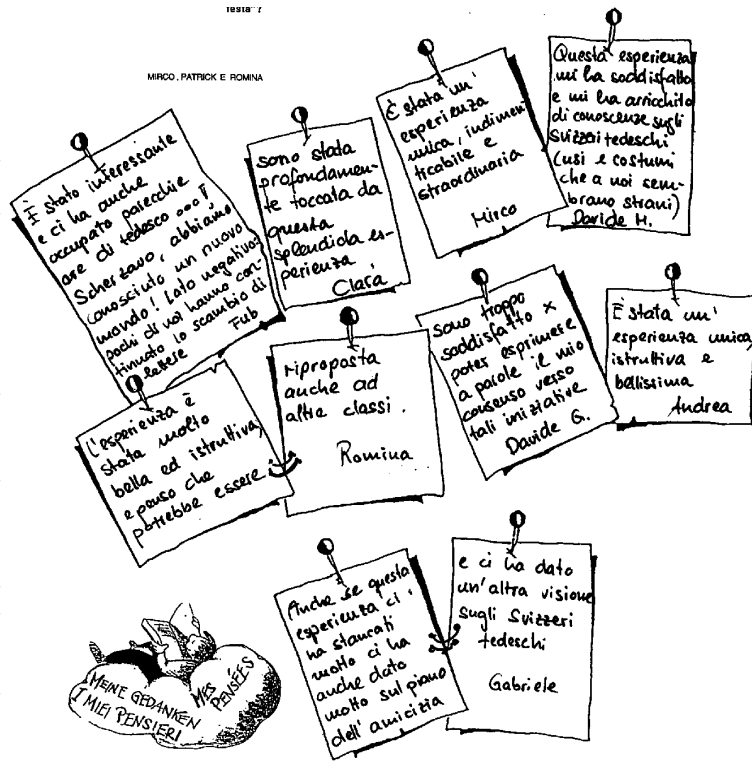 MIRCO, PATRICK E ROMINA
È stato interessante
e ci ha anche
occupato parecchie
ore di tedesco ooo!
Scherzavo, abbiamo
conosciuto un nuovo
mondo! Lato negativo:
pochi di noi hanno con-
tinuato lo scambio di
lettere
Fub
sono stata
profondamen-
te toccata da
questa
splendida es-
perienza
Clara
È stata un'
esperienza
unica, indimen-
ticabile e
straordinaria
Mirco
Questa esperienza
mi ha soddisfatto
e mi ha arricchito
di conoscenze sugli
Svizzeri tedeschi
(usi e costumi
che a noi sem-
brano strani)
Davide M.
L'esperienza è
stata molto
bella ed istruttiva,
e penso che
potrebbe essere
riproposta
anche ad
altre classi.
Romina
sono troppo
soddisfatto x
poter esprimere
a parole il mio
consenso verso
tali iniziative
Davide G.
È stata un'
esperienza unica,
istruttiva e
bellissima
Andrea
Anche se questa
esperienza ci
ha stancati
molto ci ha
anche dato
molto sul piano
dell'amicizia
e ci ha dato
un'altra visione
sugli Svizzeri
tedeschi
Gabriele
MEINE GEDANKEN
I MIEI PENSIERI
MES
PENSÉES